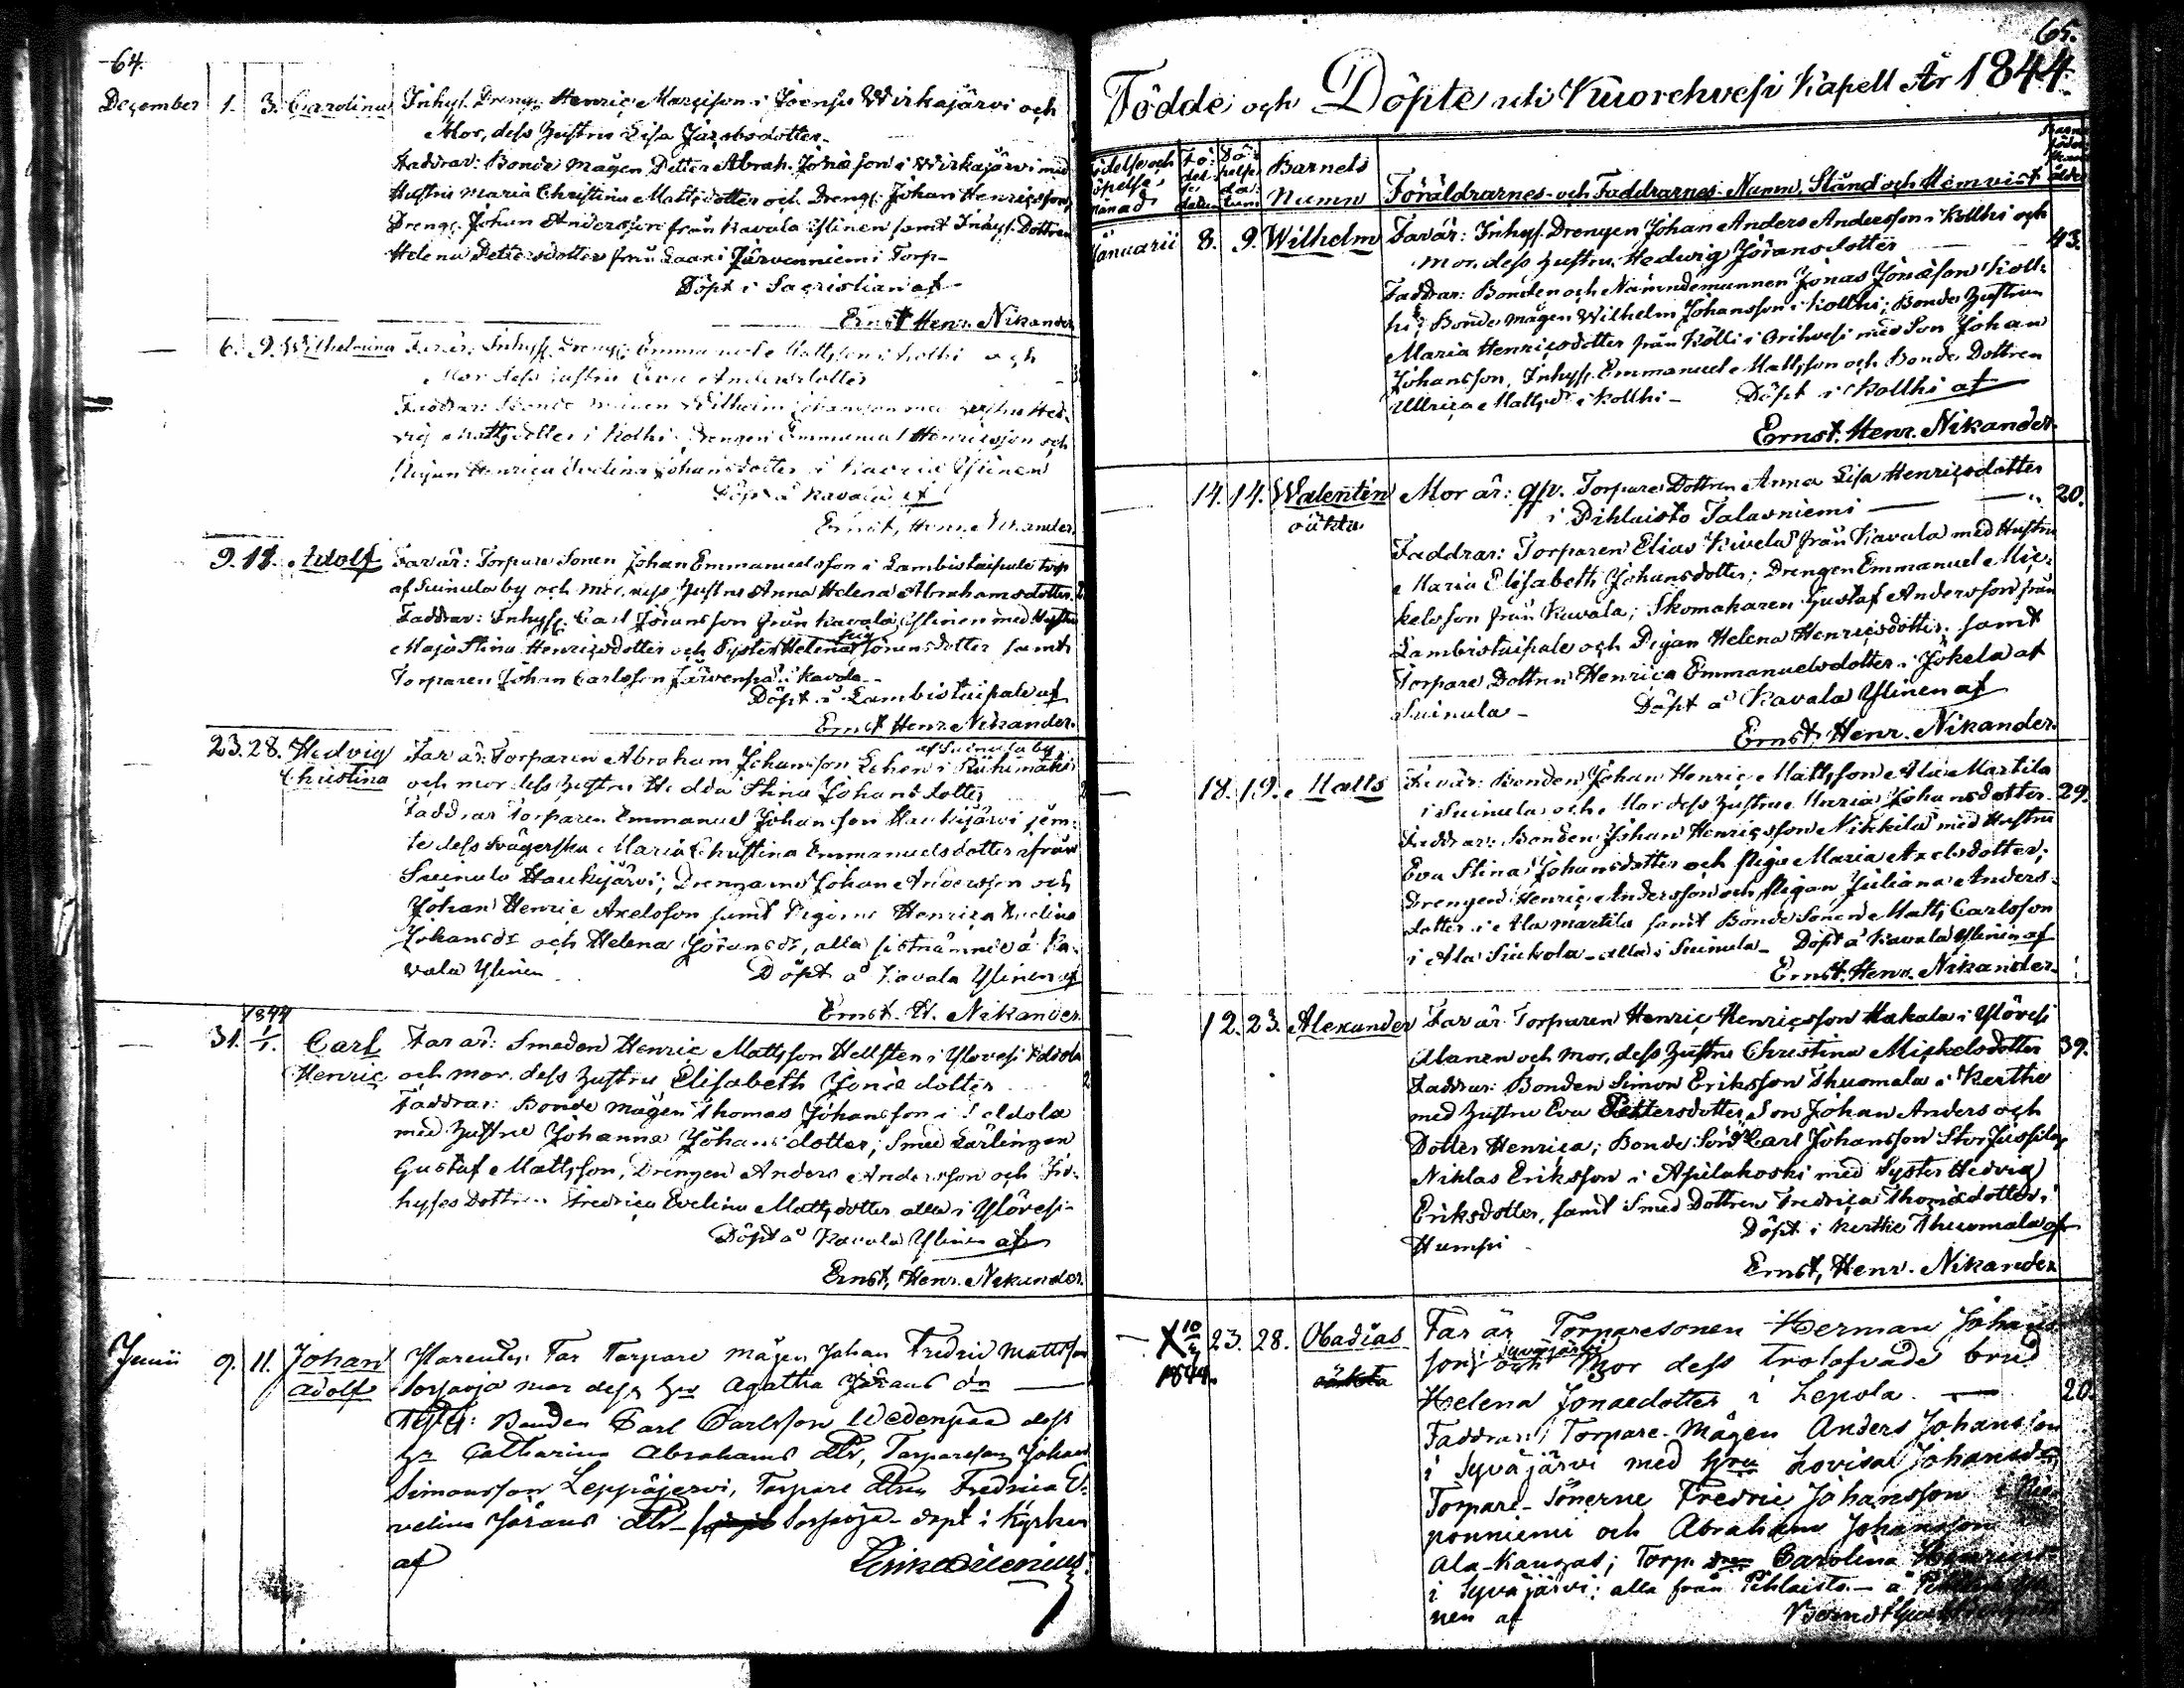 64.
December 1. 3. Carolina Inhys. Dreng. Henric Marcisson i Joensu Wirkajärvi och
Mor, dess hustru Lisa Jacobsdotter
Faddrar: Bonde mågen Petter Abrah. Jonaeson i Wirkajärvi med
Hustru Maria Christina Mattsdotter och Dreng. Johan Henricsson,
Dreng. Johan Andersson från Kavala Ylinen samt Inhys. Dottren
Helena Pettersdotter från Laari Järvenniemi Torp
Döpt i Sacristian af
Ernst Henr. Nikander
6. 9. Wilhelmina Far är: Inhys. Dreng. Emmanuel Mattsson i Kolhi och
Mor dess hustru Eva Andersdotter
Faddrar: Bonde mågen Wilhelm Johansson med hustru Hed-
vig Mattsdotter i Kolhi; Drengen Emmanuel Henricsson och
Pigan Henrica Evelina Johansdotter i Kavala Ylinen
Döpt å Kavala af
Ernst, Henr. Nikander.
9. 18. Adolf Far är: Torpare Sonen Johan Emmanuelsson i Lambistaipale torp
af Suinula by och mor, dess hustru Anna Helena Abrahamsdotter.
Faddrar: Inhys. Carl Göransson från Kavala Ylinen med Hustru
Maja Stina Henricsdotter och Syster Helena Göransdotter samt
Torparen Johan Carlsson Järvenpä i Kavala
Döpt i Lambistaipale af
Ernst Henr. Nikander.
23. 28. Hedvig Far är: Torparen Abraham Johansson Lehen i Riihimäki
af Suinula by
Christina och mor dess hustru Hedda Stina Johansdotter
Faddrar Torparen Emmanuel Johansson Haukijärvi jem-
te dess Svägerska Maria Christina Emmanuelsdotter från
Suinula Haukijärvi; Drengarne Johan Andersson och
Johan Henric Axelsson samt Pigorna Henrica Evelina
Johansdr och Helena Göransdr, alla sistnämnde å Ka-
vala Ylinen Döpt å Kavala Ylinen af
Ernst. H. Nikander.
1844
31. 1/1. Carl Far är: Smeden Henric Mattsson Hellsten i Ylövesi
Henric och mor, dess hustru Elisabeth Jonaedotter
Faddrar: Bonde mågen Thomas Johansson i
med hustru Johanna Johansdotter; Smed Lärlingen
Gustaf Mattsson, Drengen Anders Andersson och In-
hyses Dottren Fredrica Evelina Mattsdotter alla i Ylövesi-
Döpt å Kavala Ylinen af
Ernst, Henr. Nikander.
Junii 9. 11. Johan Parentes: Far Torpare mågen Johan Fredric Mattsson
Adolf mor dess hu Agatha Görans dr
Test: Bonden Carl Carlsson Wedenpää dess
hu Catharina Abrahams dtr, Torparson Johan
Simonsson Leppäjervi, Torpare dtren Fredrica E-
velina Görans dtr - döpt i Kyrkan
af
65.
Födde och Döpte uti Kuorehvesi Kapell År 1844.
Födelse och Döpelse månad Födelse datum Döpelse datum Barnets Namn Föräldrarnes- och Faddrarnes- Namn, Stånd och Hemvist
Januarii 8. 9. Wilhelm Far är: Inhys. Drengen Johan Anders Andersson i Kollhi och
mor, dess hustru Hedwig Göransdotter 43.
Faddrar: Bonden och Nämndemannen Jonas Jonaeson Koll-
hi; Bonde mågen Wilhelm Johansson i Kollhi; Bonde Hustrun
Maria Henricsdotter från Kölli i Orihvesi med Son Johan
Johansson, Inhys. Emmanuel Mattsson och Bonde Dottren
Ullrica Mattsdr i Kollhi - Döpt i Kollhi af
Ernst. Henr. Nikander.
14. 14. Walentin Mor är: Qsp. Torpare Dottren Anna Lisa Henricsdotter
oäkta i Pihlaisto Talasniemi 20.
Faddrar: Torparen Elias Kivelä från Kavala med Hustru
Maria Elisabeth Johansdotter; Drengen Emmanuel Mic-
kelsson från Kavala; Skomakaren Gustaf Andersson från
Lambistaipale och Pigan Helena Henricsdotter; samt
Torpare Dottren Henrica Emmanuelsdotter i Jokela af
Suinula - Döpt å Kavala Ylinen af
Ernst, Henr. Nikander.
18. 19. Matts Far är: Bonden Johan Henric Mattsson Ala Martila
i Suinula och Mor dess hustru Maria Johansdotter. 29.
Faddrar: Bonden Johan Henricsson Nikkilä med Hustru
Eva Stina Johansdotter och Piga Maria Axelsdotter;
Drengen Henric Andersson och Pigan Juliana Anders-
dotter i Ala Martila samt Bonde Sonen Matts Carlsson
i Ala Siukola - alla i Suinula - Döpt å Kavala Ylinen af
Ernst. Henr. Nikander.
12. 23. Alexander Far är Torparen Henric Henricsson Makala i Ylövesi
Alanen och mor, dess hustru Christina Mickelsdotter 39.
Faddrar: Bonden Simon Eriksson Thuomala i Kerthe
med hustru Eva Pettersdotter, Son Johan Anders och
Dotter Henrica; Bonde Son Carl Johansson Stor Jussila,
Niklas Eriksson i Apilakoski med Syster Hedvig
Eriksdotter, samt Smed Dottren Fredrica Thomaedotter i
Humpi Döpt i Kerthe Thuomala af
Ernst, Henr. Nikander
23. 28. Obadias Far är Torparesonen Herman Johans-
1844. oäkta son i Syväjärvi och Mor dess trolofvade brud
Helena Jonaedotter i Lepola. 20.
Faddrar: Torpare-Mågen Anders Johansson
i Syväjärvi med hru Lovisa Johansdr,
Torpare-Sönerne Fredric Johansson i
ponniemi och Abraham Johansson
Ala-Kangas; Torp. dren Carolina
i Syväjärvi; alla från Pihlaisto - å
nen af